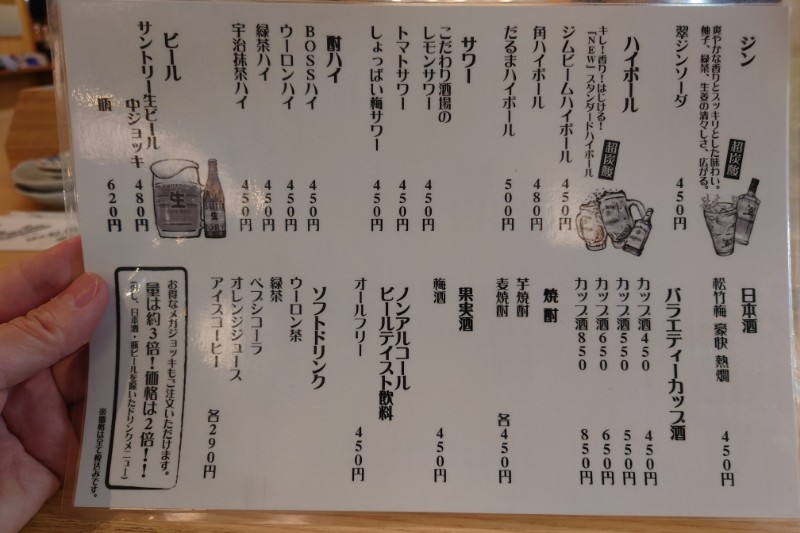 ジン
爽やかな香りとスッキリとした味わい。
柚子、緑茶、生姜の清々しさ、広がる。
超炭酸
翠ジンソーダ 450円
ハイボール
キレ!香り!はじける!
「NEW」スタンダードハイボール
超炭酸
ジムビームハイボール 450円
角ハイボール 480円
だるまハイボール 500円
サワー
こだわり酒場の
レモンサワー 450円
トマトサワー 450円
しょっぱい梅サワー 450円
酎ハイ
BOSSハイ 450円
ウーロンハイ 450円
緑茶ハイ 450円
宇治抹茶ハイ 450円
ビール
サントリー生ビール
中ジョッキ 480円
瓶 620円
生
日本酒
松竹梅 豪快 熱燗 450円
バラエティーカップ酒
カップ酒450 450円
カップ酒550 550円
カップ酒650 650円
カップ酒850 850円
焼酎
芋焼酎
麦焼酎 各450円
果実酒
梅酒 450円
ノンアルコール
ビールテイスト飲料
オールフリー 450円
ソフトドリンク
ウーロン茶
緑茶
ペプシコーラ
オレンジジュース
アイスコーヒー 各290円
お得なメガジョッキもご注文いただけます。
量は約3倍!価格は2倍!!
(但し、日本酒・瓶ビールを除いたドリンクメニュー)
※価格は全て税込みです。